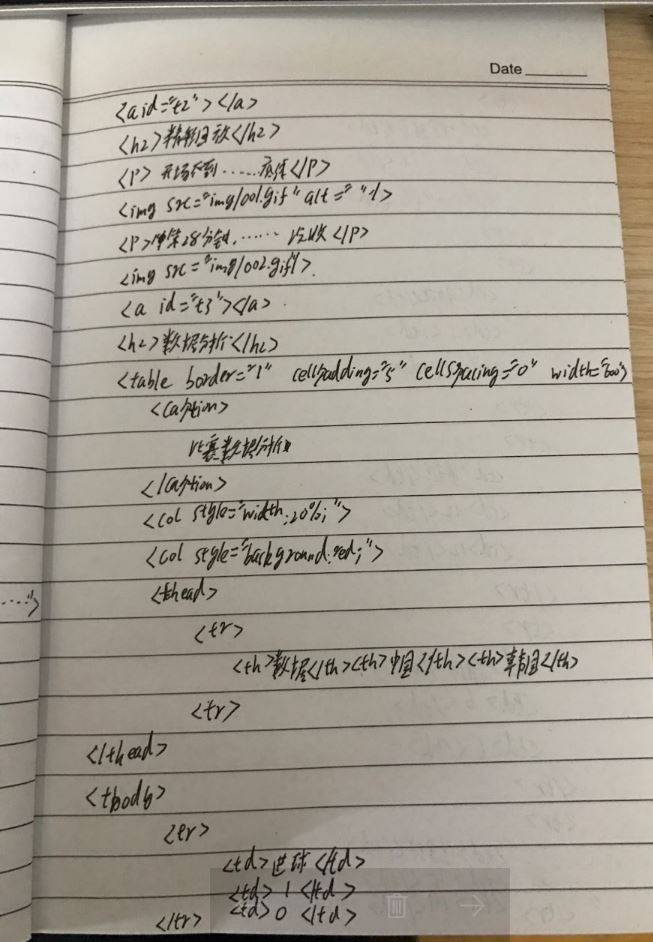 Date
<a id="t2"></a>
<h2>精彩回放</h2>
<P>开场不到......底线</P>
<img src="img/001.gif" alt=" "/>
<P>第28分钟,...... 没收</P>
<img src="img/002.gif"/>
<a id="t3"></a>
<h2>数据分析</h2>
<table border="1" cellpadding="5" cellspacing="0" width="600">
<caption>
比赛数据分析
</caption>
<col style="width:20%;">
<col style="background:red;">
<thead>
<tr>
<th>数据</th><th>中国</th><th>韩国</th>
<tr>
</thead>
<tbody>
<tr>
<td>进球</td>
<td>1</td>
<td>0</td>
</tr>
....">